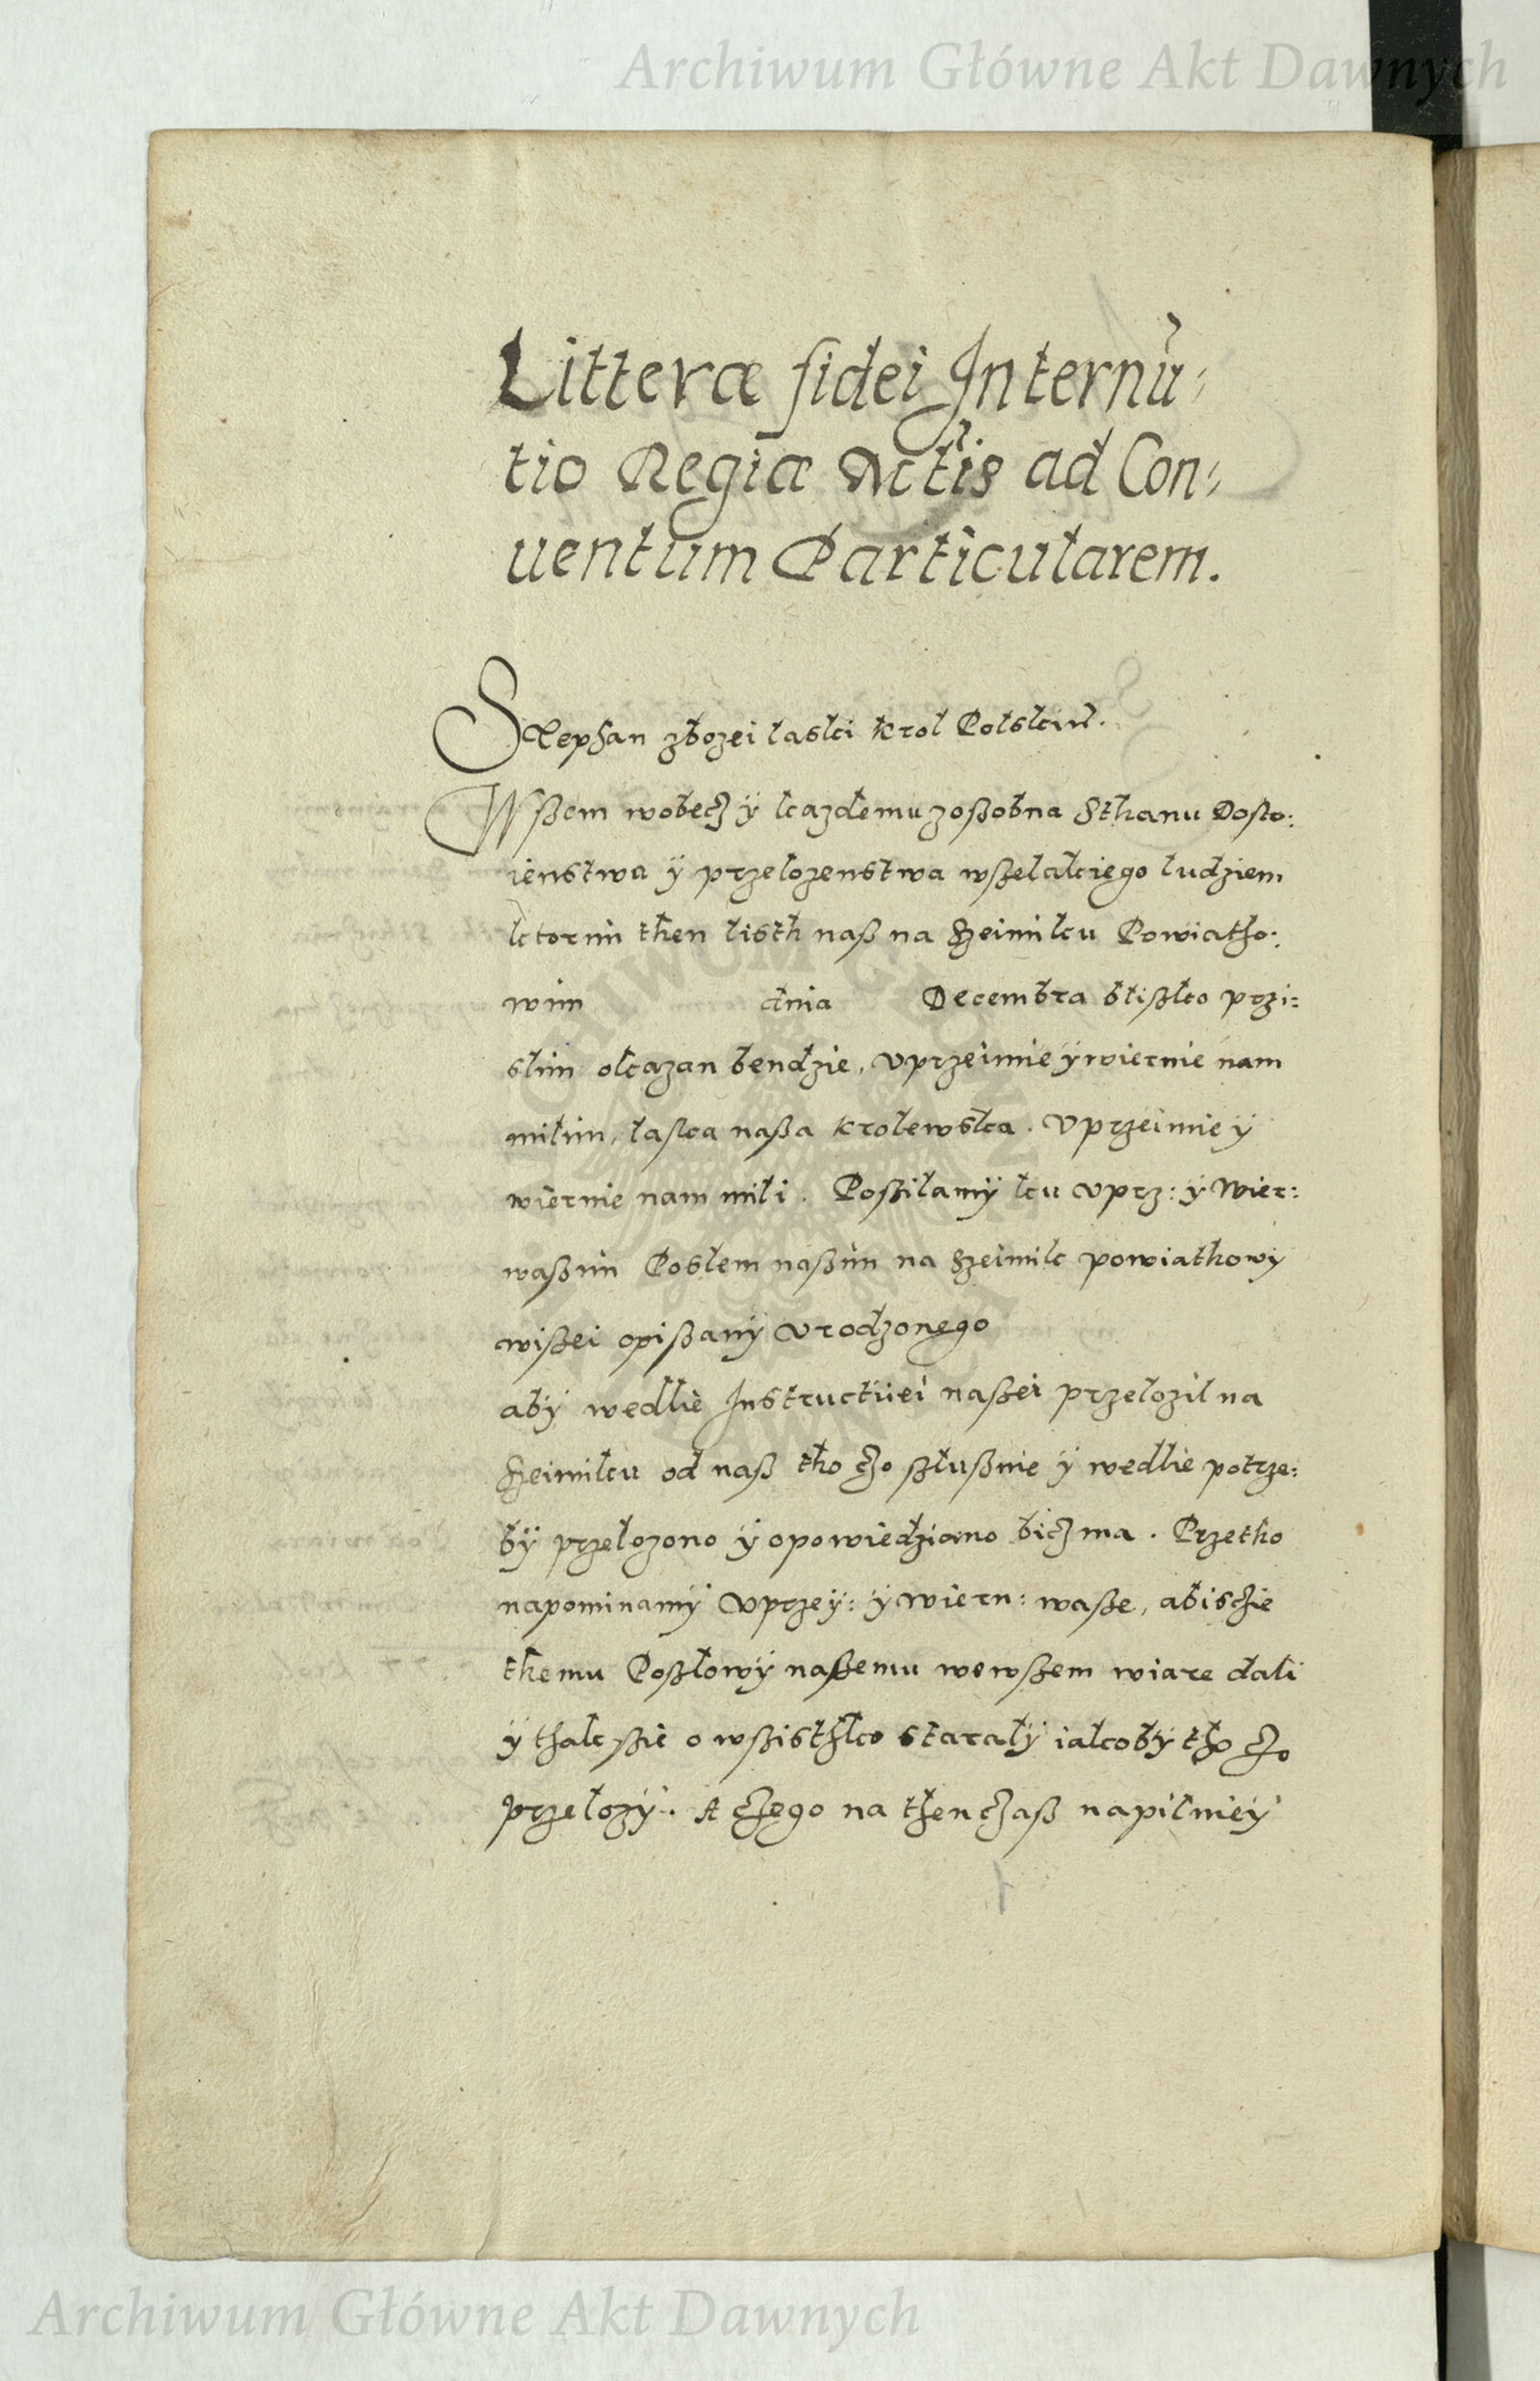 Archiwum Główne Akt Dawnych
Litteræ fidei Internu-
tio Regiæ Mtis ad Con-
uentum Particularem.
Stephan zbozei laski krol Polski etc.
Wßem wobecz ÿ kazdemu zoßobna Sthanu Dosto:
ienstwa ÿ przelozenstwa wßelakiego ludziem
ktorim then listh naß na Szeimiku Powiatho:
wim dnia Decembra blißko przi:
slim okazan bendzie, vprzeimie ÿ wiernie nam
milim, laska naßa krolewska. Vprzeimie ÿ
wiernie nam mili. Poßilamÿ ku vprz: ÿ Wier:
waßim Poslem naßim na Szeimik powiathowi
wißei opißanÿ vrodzonego
abÿ wedlie Instructiiei naßei przelozil na
Szeimiku od naß tho czo szlußnie ÿ wedlie potrze:
bÿ przelozono ÿ opowiedziano bicz ma. Przetho
napominamÿ vprzeÿ: ÿ wiern: waße, abisczie
themu Poszlowÿ naßemu wewßem wiare dali
ÿ thak ßie o wßisthko staralÿ iakobÿ tho czo
przelozÿ. A czego na then czaß napilnieÿ
1
Archiwum Główne Akt Dawnych